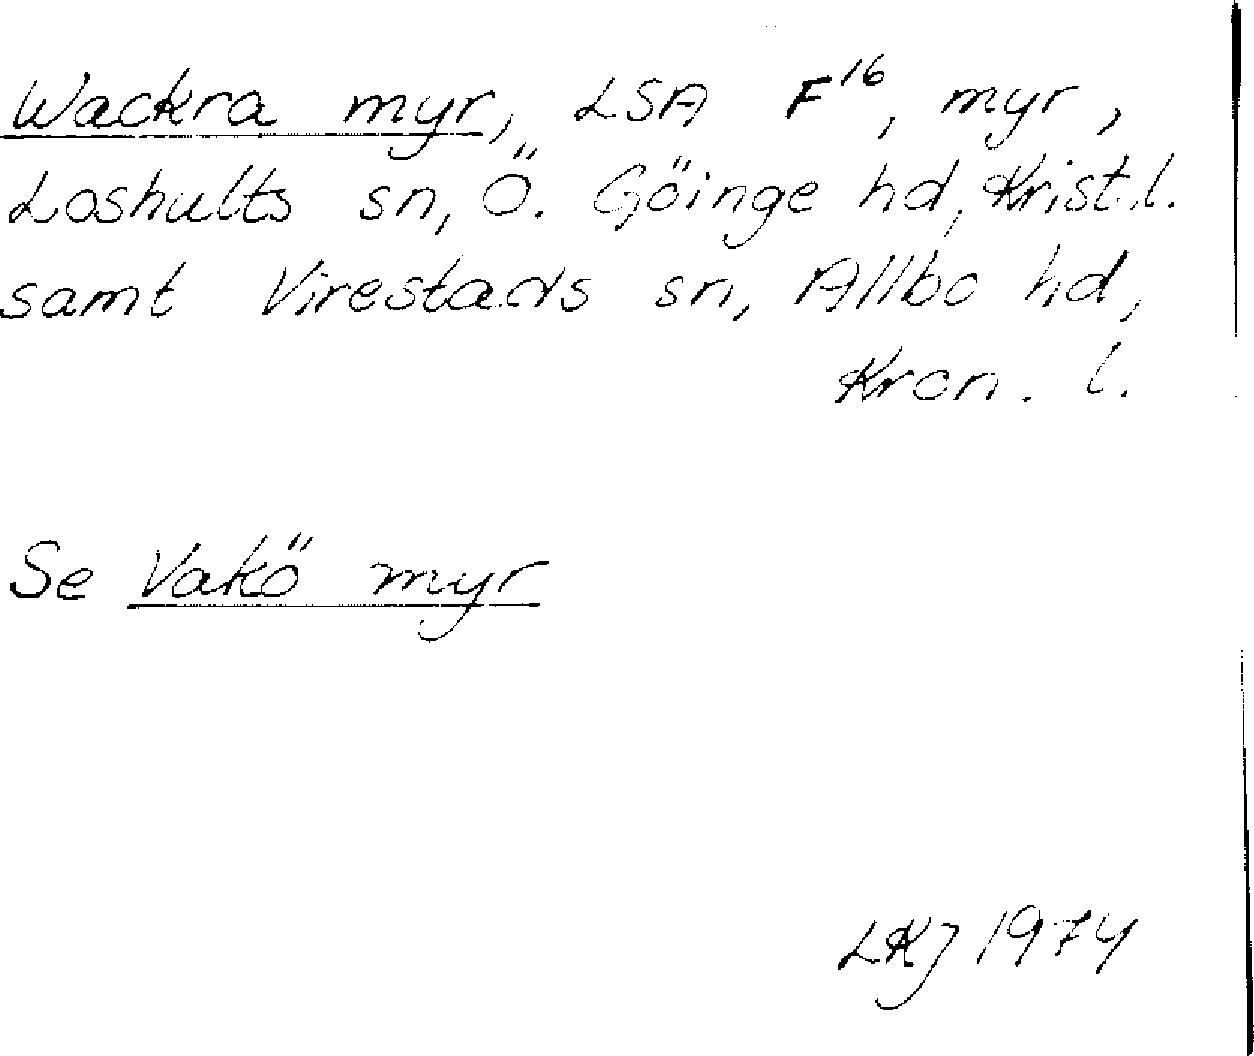 Wackra myr, LSA F16, myr,
Loshults sn, Ö. Göinge hd, Krist.l.
samt Virestads sn, Allbo hd,
Kron. l.
Se Vakö myr
LKJ 1974